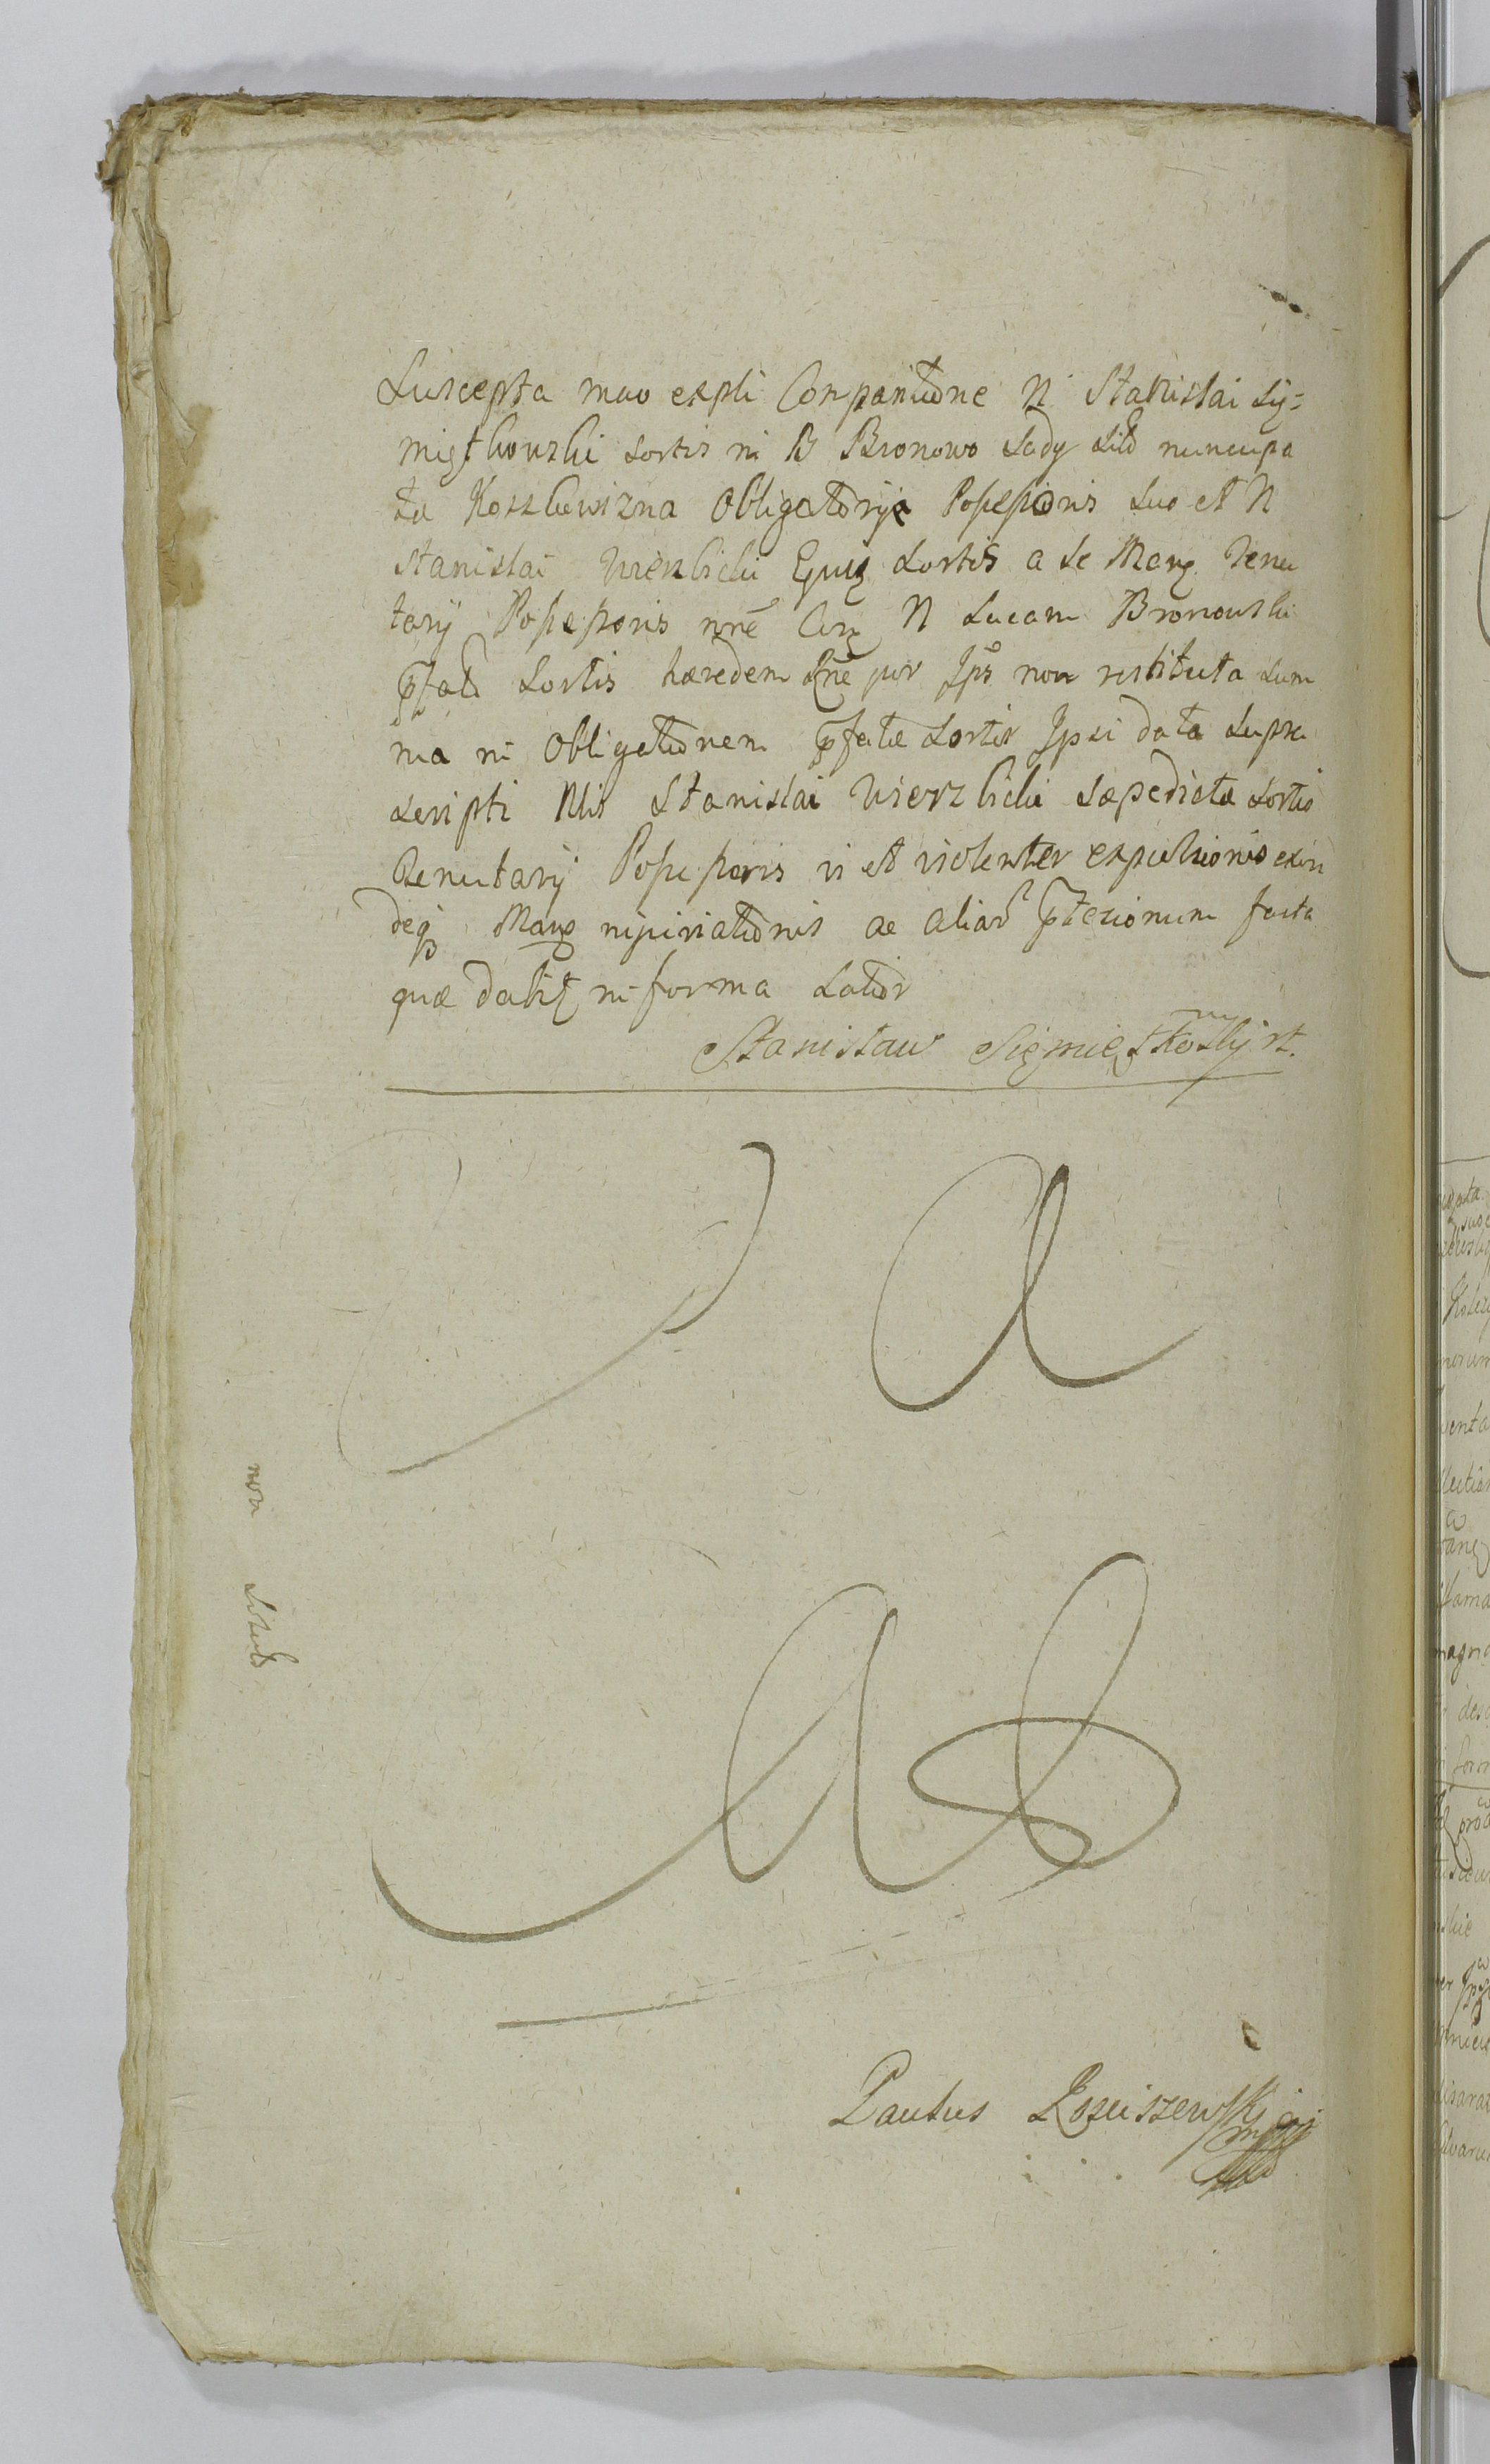 Suscepta mao expli Comparitõne N Stanislai Sy=
mię̨tkowski Sortis in B Bronowo Sady Sitõ nuncupa
ta Kosskowizna Obligatõrije Possessoris Suo et N
Stanislai Wierzbicki Ejusq Sortis a Se Marg. Tenu
tarij Possessoris nne Con N Lucam Bronowski
pfatõ Sortis hæredem õne por Ips non restituta Sum
ma in Obligatõnem pfatæ Sortis Ipsi data Supra
scripti Nlis Stanislai Wierzbicki sæpedictæ Sortis
Tenutarij Possessoris vi et violenter expulsionis exin
deq Marg injuriatõnis ac aliar ptesionum facta
quæ dabit in forma Latõr
Stanisław Siemiętkoski
non Solut
Paulus Łoziszewski